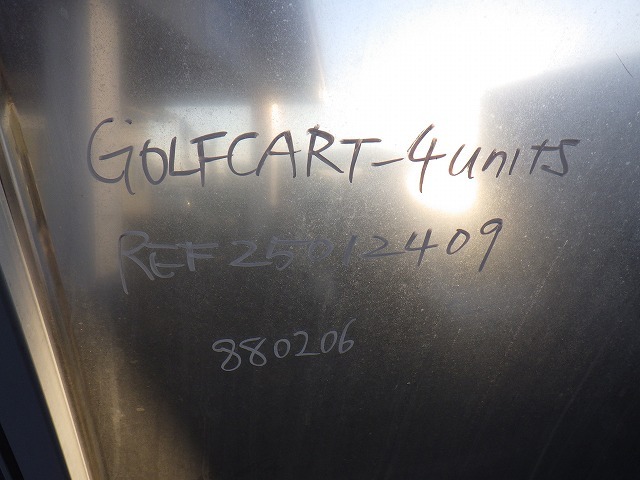 GOLFCART-4units
REF 25012409
880206